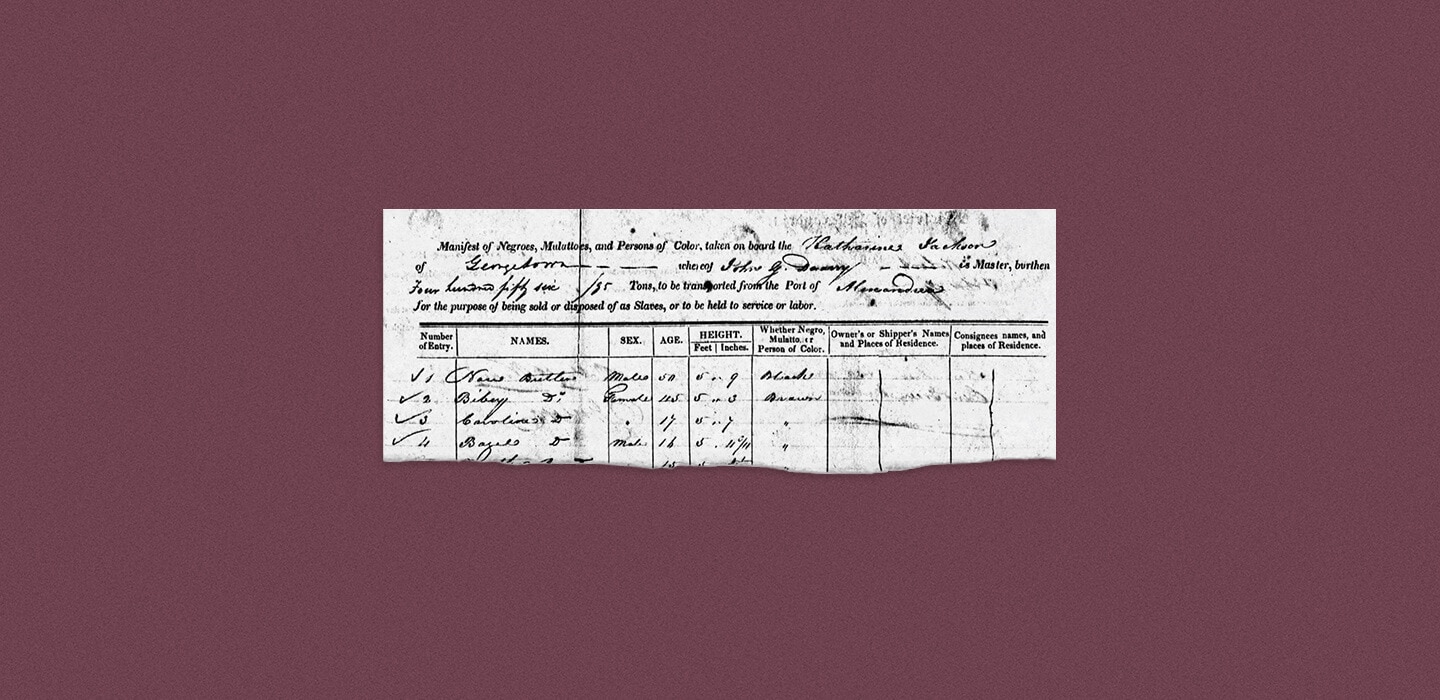 Manifest of Negroes, Mulattoes, and Persons of Color, taken on board the Katharine Jackson
of Georgetown whereof John G. is Master, burthen
Four hundred fifty six /95 Tons, to be transported from the Port of Alexandria
for the purpose of being sold or disposed of as Slaves, or to be held to service or labor.
Number of Entry. NAMES. SEX. AGE. HEIGHT. Feet Inches. Whether Negro, Mulatto, or Person of Color. Owner's or Shipper's Names and Places of Residence. Consignees names, and places of Residence.
1 Nace Butler Male 50 5 " 9 Black
2 Bibey Do Female 45 5 " 3 Brown
3 Caroline D " 17 5 " 7 "
4 Basel D Male 16 5 "